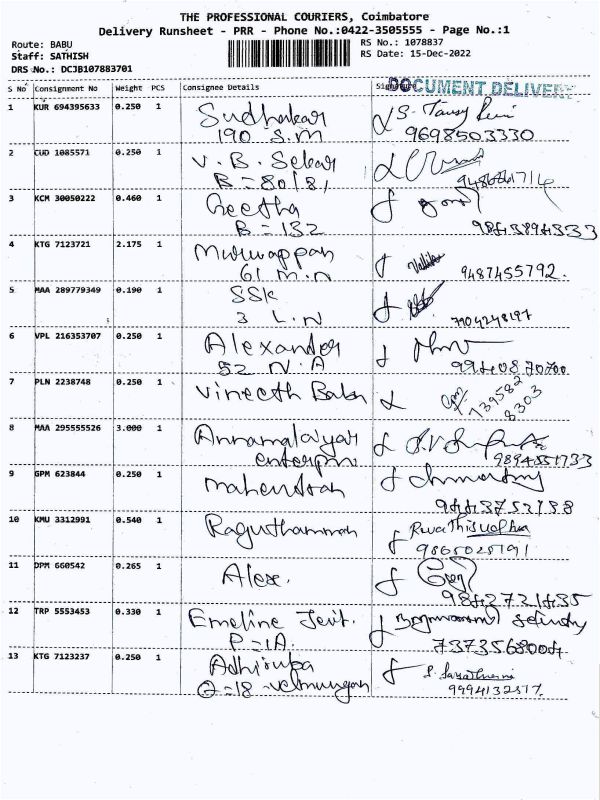 THE PROFESSIONAL COURIERS, Coimbatore
Delivery Runsheet - PRR - Phone No.:0422-3505555 - Page No.:1
Route: BABU
Staff: SATHISH
DRS No.: DCJB107883701
RS No.: 1078837
RS Date: 15-Dec-2022
S No Consignment No Weight PCS Consignee Details
DOCUMENT DELIVERY
1 KUR 694395633 0.250 1 Sudhakar
190 S.M 9698503330
2 CUD 1085571 0.250 1 V. B. Sekar
B = 80/81
3 KCM 30050222 0.460 1 Geetha
B = 132
4 KTG 7123721 2.175 1 Muruvappan
61 M.N 9487455792.
5 MAA 289779349 0.190 1 SSK
3 L.N 7904248197
6 VPL 216353707 0.250 1 Alexander
52 N.A 9940870700
7 PLN 2238748 0.250 1 Vineeth Babu
739582
8303
8 MAA 295555526 3.000 1 Annamalaiyar
9 GPM 623844 0.250 1 Mahendran
9443752138
10 KMU 3312991 0.540 1
9865025191
11 DPM 660542 0.265 1 Alex.
9842721435
12 TRP 5553453 0.330 1 Emeline
P=1A. 7373568004
13 KTG 7123237 0.250 1 Adhirupa
9994132517.